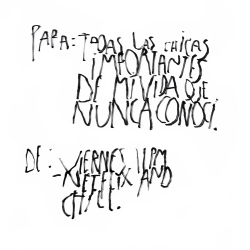 PARA: TODAS LAS CHICAS
IMPORTANTES
DE MI VIDA QUE
NUNCA CONOCÍ.
DE: -VIERNES 11PM
NETFLIX AND
CHILL.